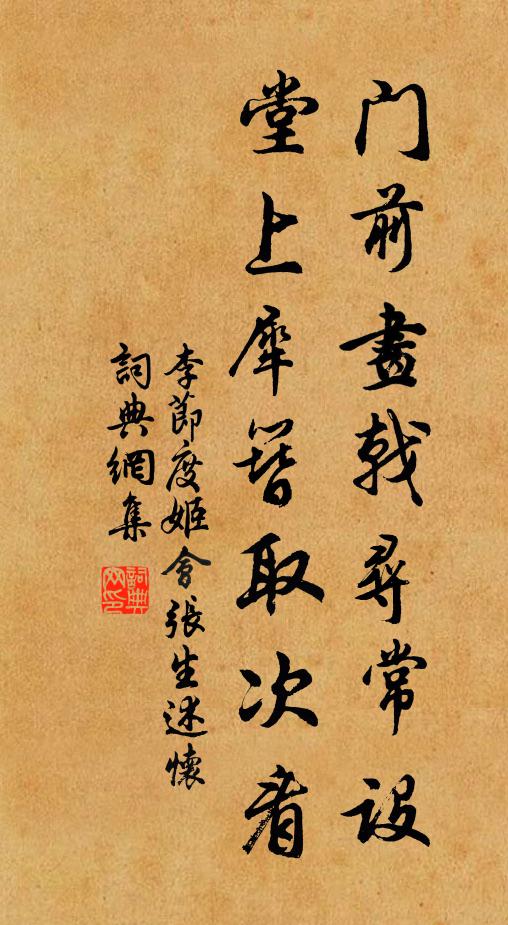 门前畫戟尋常設
堂上犀簪取次看
李節度姬會張生述懷
詞典網集
詞典網印